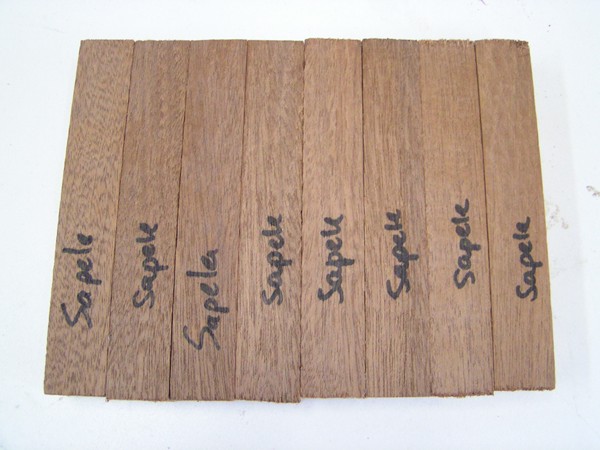 Sapele
Sapele
Sapela
Sapele
Sapele
Sapele
Sapele
Sapele